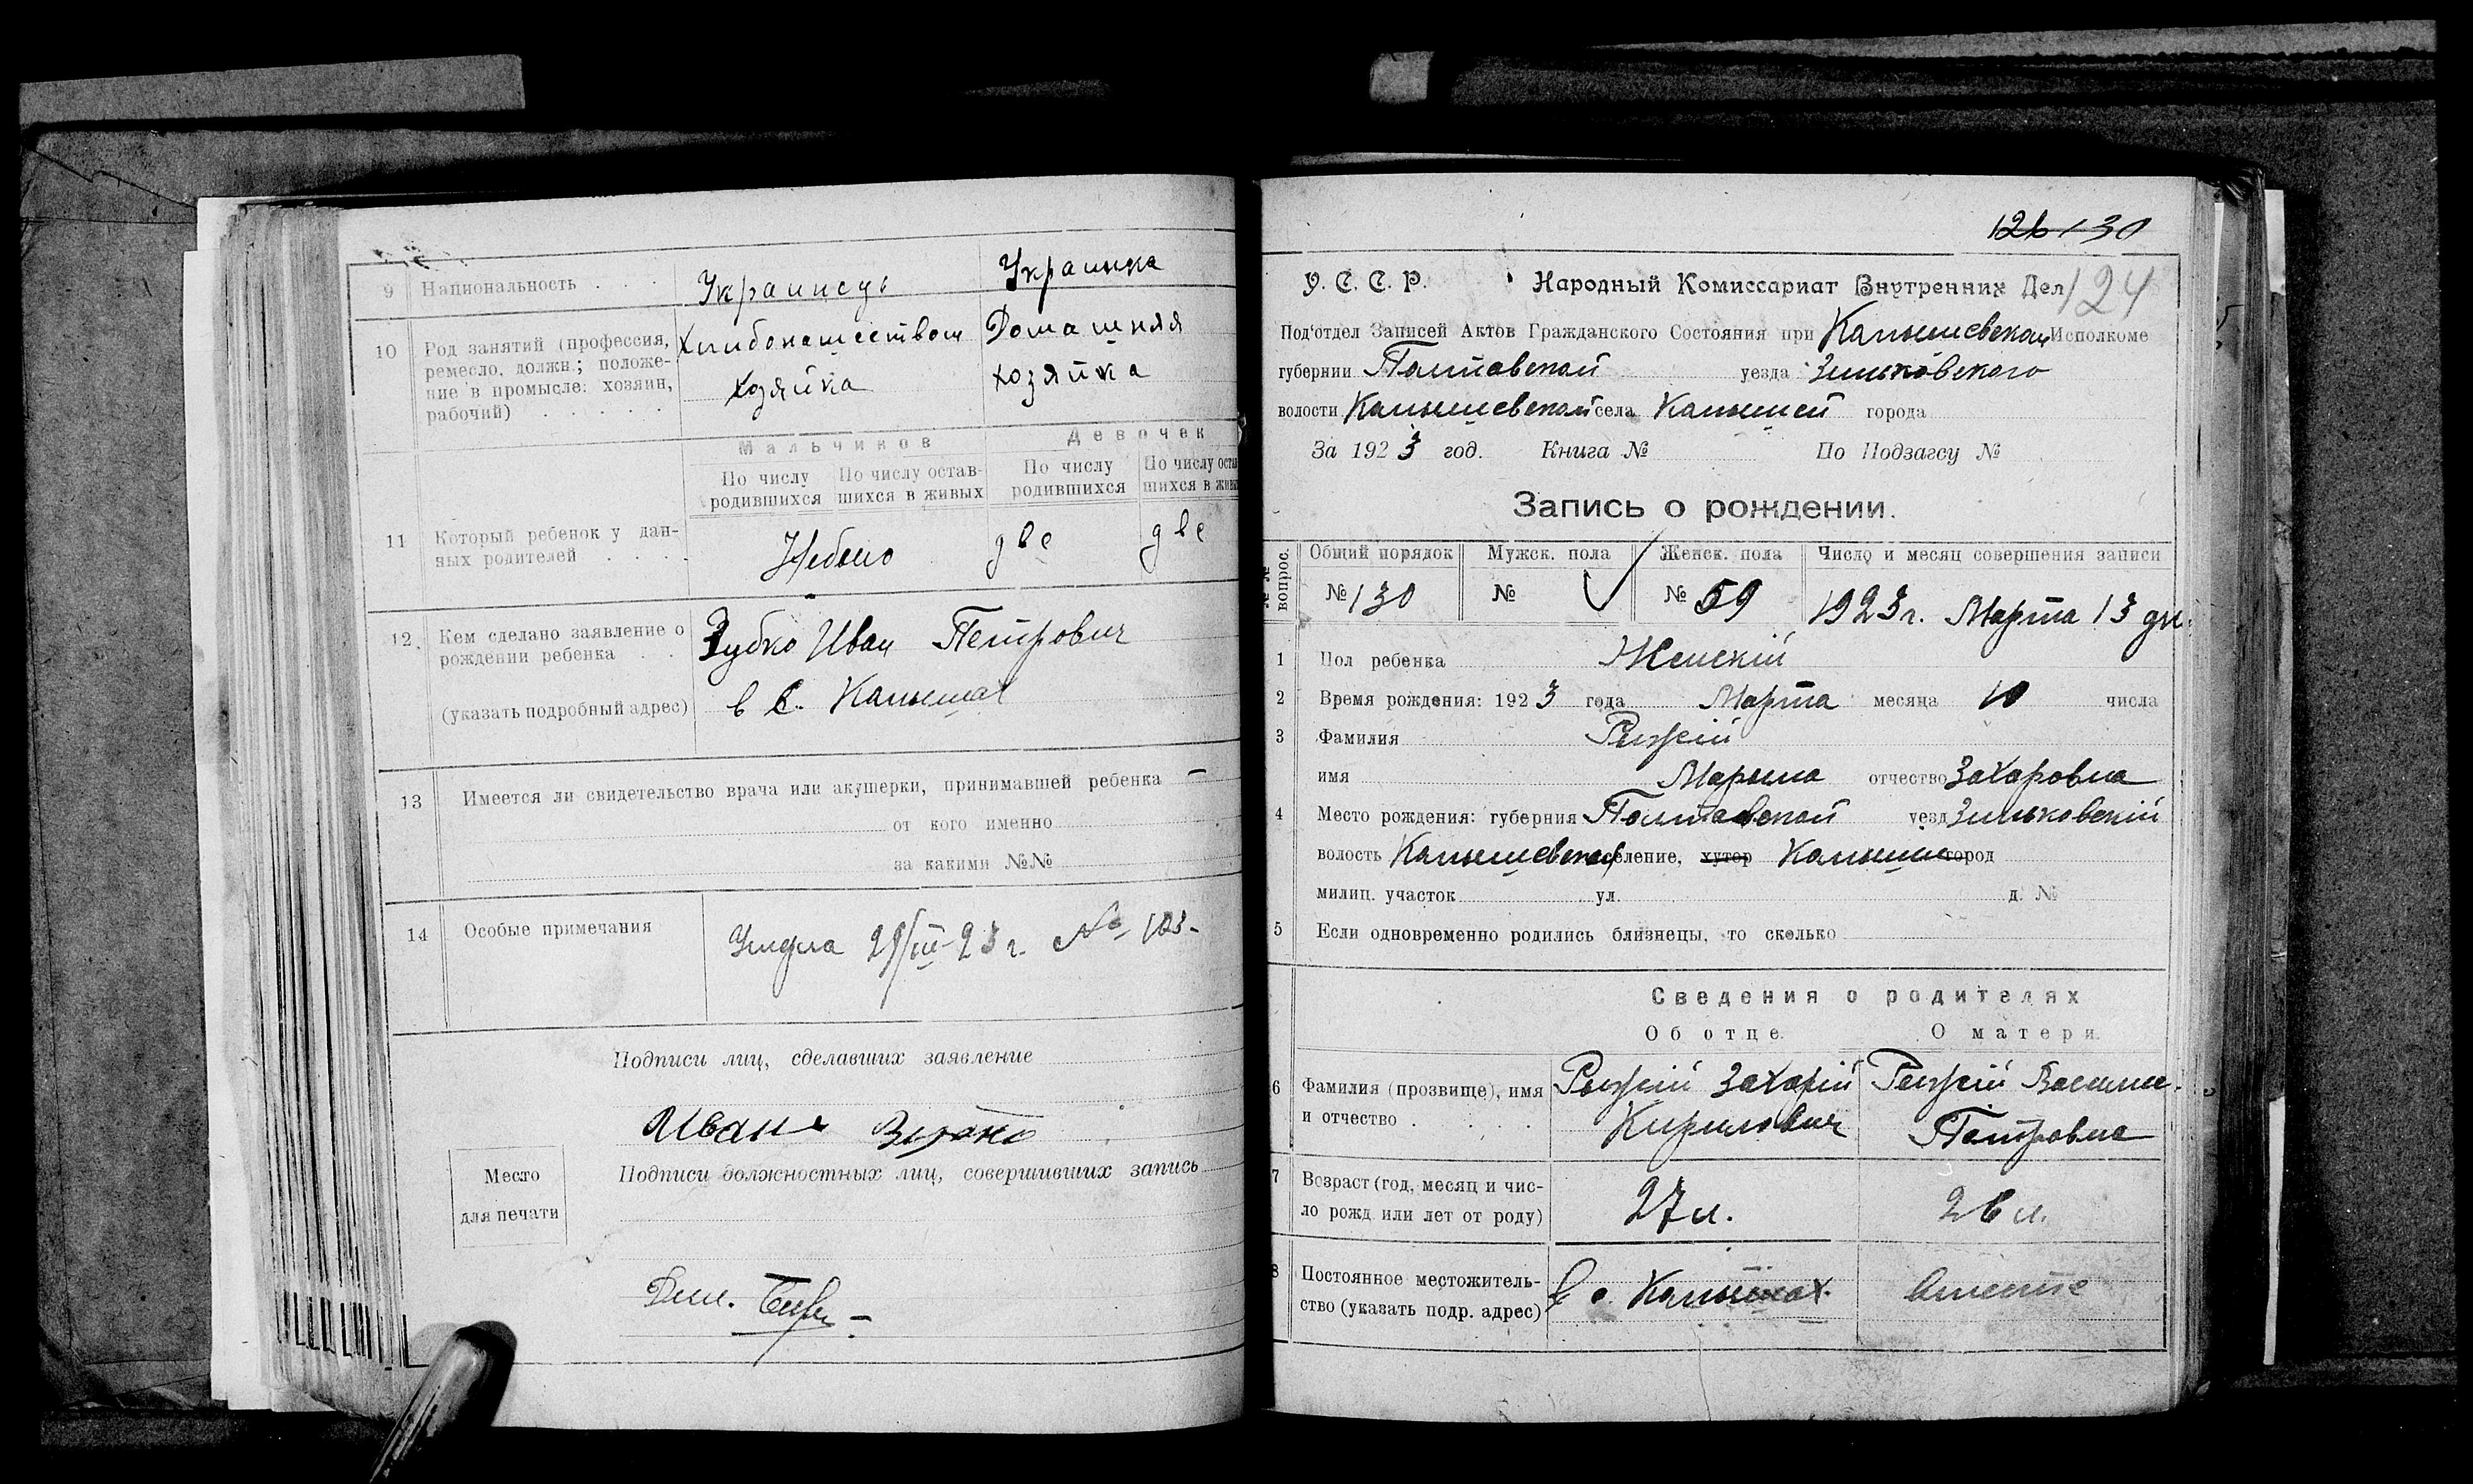 9 Национальность . . . Украинець Украинка
10 Род занятий (профессия, ремесло, должн.; положение в промысле: хозяин, рабочий) . . . . .
Хлибопашеством Домашняя
хозяйка хозяйка
Мальчиков Девочек
По числу родившихся По числу оставшихся в живых По числу родившихся
11 Который ребенок у данных родителей . . . .
Небыло две две
12. Кем сделано заявление о рождении ребенка . .
Зубко Иван Петрович
(указать подробный адрес) в С. Капышах
13 Имеется ли свидетельство врача или акушерки, принимавшей ребенка —
от кого именно
за какими №№
14 Особые примечания
Умерла 29/III-23 г. № 103-
Подписи лиц, сделавших заявление
Иванъ Зубко
Место для печати
Подписи должностных лиц, совершивших запись
126 130
У. С. С. Р. Народный Комиссариат Внутренних Дел 124
Под'отдел Записей Актов Гражданского Состояния при Исполкоме
губернии Полтавской уезда Зиньковского
волости села города
За 1923 год. Книга № По Подзагсу №
Запись о рождении.
№№ вопрос. Общий порядок Мужск. пола Женск. пола Число и месяц совершения записи
№ 130 № № 59 1923 г. Марта 13 дн.
1 Пол ребенка Женскій
2 Время рождения: 1923 года Марта месяца 10 числа
3 Фамилия Рыжій
имя отчество Захаровна
4 Место рождения: губерния Полтавской уезд Зиньковскій
волость селение, хутор город
милиц. участок ул. д. №
5 Если одновременно родились близнецы, то сколько
Сведения о родителях
Об отце. О матери.
6 Фамилия (прозвище), имя и отчество . . . .
Рыжій Захарій Рыжій
Кирилович Петровна
7 Возраст (год, месяц и число рожд. или лет от роду)
27 л. 26 л.
8 Постоянное местожительство (указать подр. адрес)
В с. Капышах. Вместе